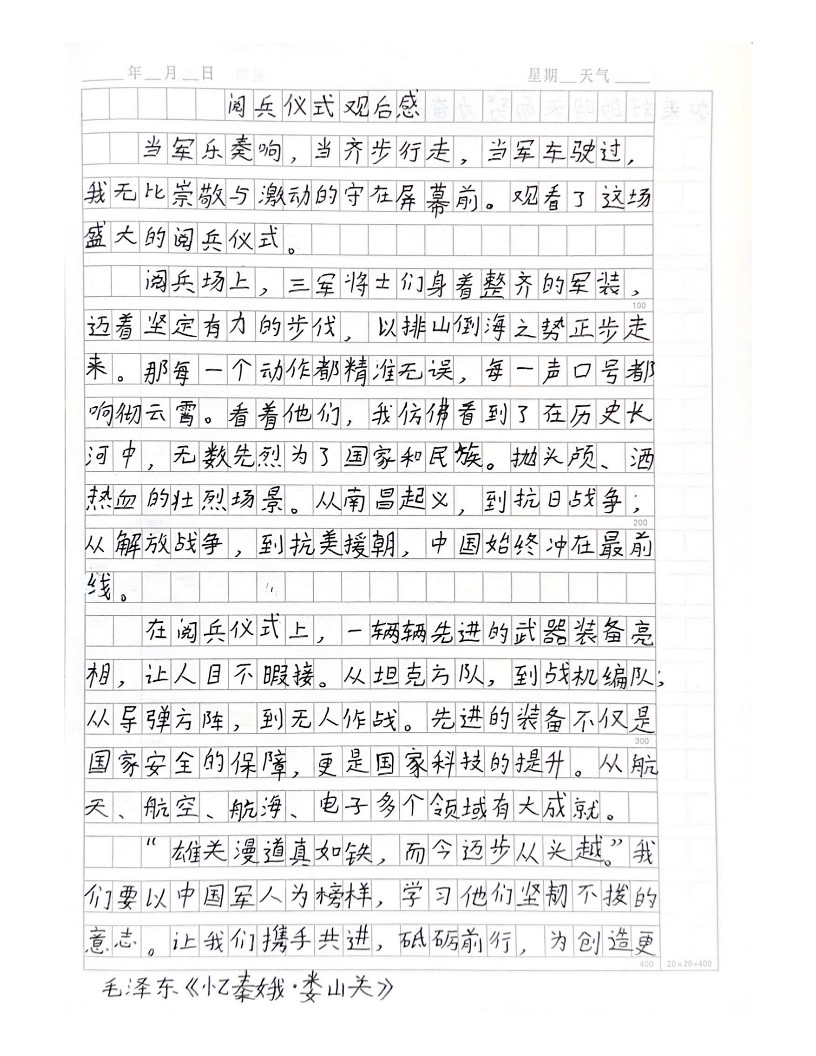 年 月 日 星期 天气
阅兵仪式观后感
当军乐奏响，当齐步行走，当军车驶过，
我无比崇敬与激动的守在屏幕前。观看了这场
盛大的阅兵仪式。
阅兵场上，三军将士们身着整齐的军装，
100
迈着坚定有力的步伐，以排山倒海之势正步走
来。那每一个动作都精准无误，每一声口号都
响彻云霄。看着他们，我仿佛看到了在历史长
河中，无数先烈为了国家和民族。抛头颅、洒
热血的壮烈场景。从南昌起义，到抗日战争；
200
从解放战争，到抗美援朝，中国始终冲在最前
线。
在阅兵仪式上，一辆辆先进的武器装备亮
相，让人目不暇接。从坦克方队，到战机编队；
从导弹方阵，到无人作战。先进的装备不仅是
300
国家安全的保障，更是国家科技的提升。从航
天、航空、航海、电子多个领域有大成就。
“雄关漫道真如铁，而今迈步从头越。”我
们要以中国军人为榜样，学习他们坚韧不拔的
意志。让我们携手共进，砥砺前行，为创造更
400 20×20=400
毛泽东《忆秦娥·娄山关》